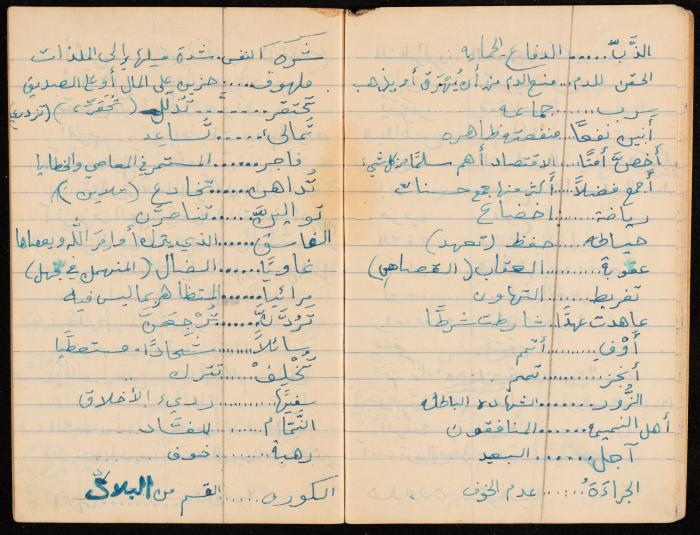 الذَّبّ...... الدفاع الحمايه
الحقن للدم... منع الدم من أن يُهْرَق أو يذهب
سرب....... جماعه
أبْيَن نفعًا... منفعته ظاهره
أَخصّ أمنًا... الاقتصاد أهم سلمًا من كل شيء
أجمع فضلاً.... أكثر منها جمع حسنات
رياضة...... اخضاع
حياطه........ حفظ (تعهد)
عقوبة........ العقاب (القصاص)
تفريط...... التهاون
عاهدت عهدًا.. شارطت شرطًا
أَوْفِ........ أتمم
أنجز......... تمم
الزُّور........ الشهاده الباطله
أهل النميمه...... المنافقون
آجل........ البعيد
الجراءَةُ...... عدم الخوف
شَرَه النفس.. شدة ميلها إلى الملذات
ملهوف..... حزين على المال أو على الصديق
تحتقر......... تُذلل (تُحَقِّر) (تزدري)
تُمالئ..... تُساعِد
فاجر...... المستمر في المعاصي والخطايا
تُداهن...... تخادع (تلاين)
تواليَنّ...... تناصرَن
الفاسق..... الذي يترك أوامر الله ويعصاها
غاويًا...... الضال (المنهمل في جهل)
مرائيًا..... المتظاهر بما ليس فيه
تَرُدّنَّ..... تُرْجِعَنَّ
سائلاً...... شحاذًا. مستعطيا
تُخْلِفْ...... تترك
سفيهًا........ رديء الأخلاق
النَّمّام...... الفسَّاد
رهبة....... خوف
الكوره..... القسم من البلاد